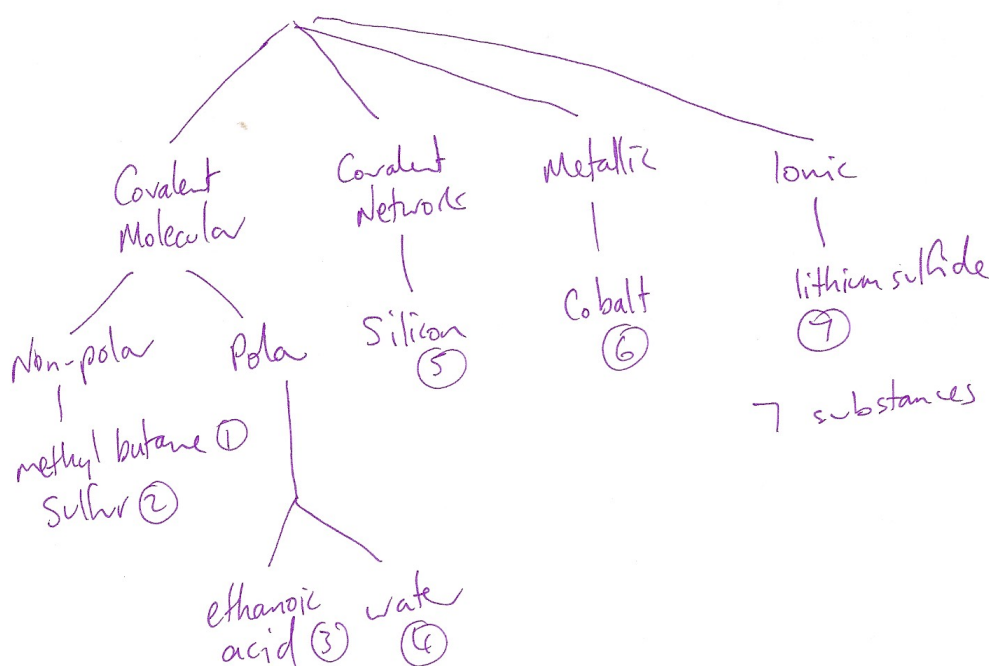 Covalent
Molecular
Covalent
Network
Metallic
Ionic
Non-polar
Pola
Silicon
5
Cobalt
6
lithium sulfide
7
methyl butane 1
Sulfur 2
7 substances
ethanoic
acid 3
water
4